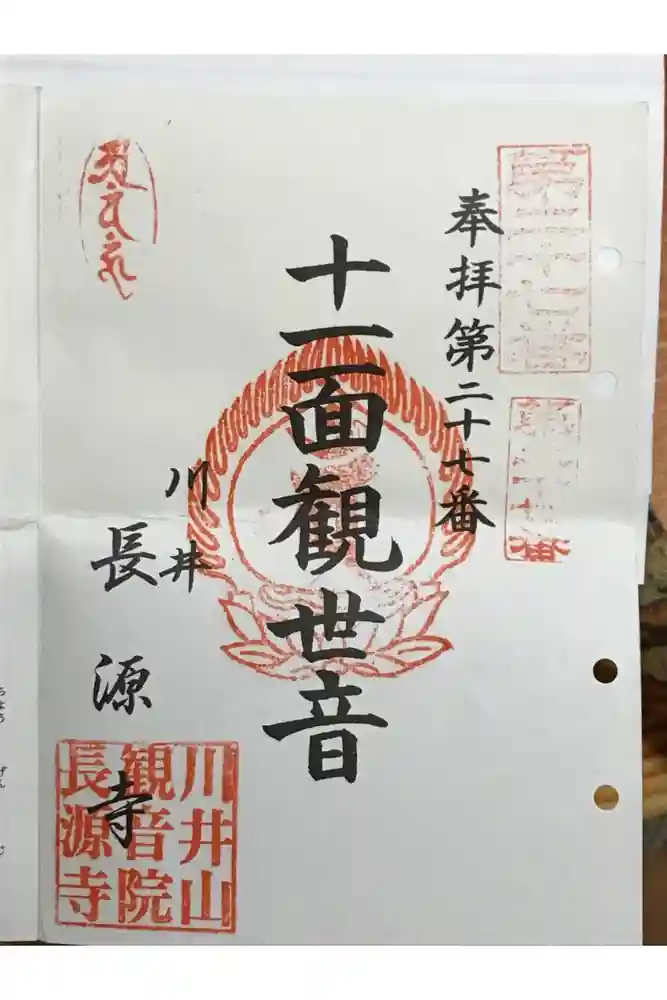 奉拝第二十七番
十一面観世音
川井
長源寺
川井山
観音院
長源寺
ちょう
げん
じ